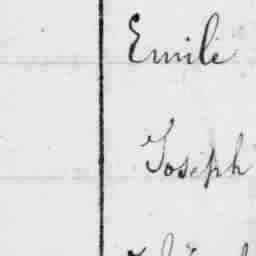 Emile
Joseph